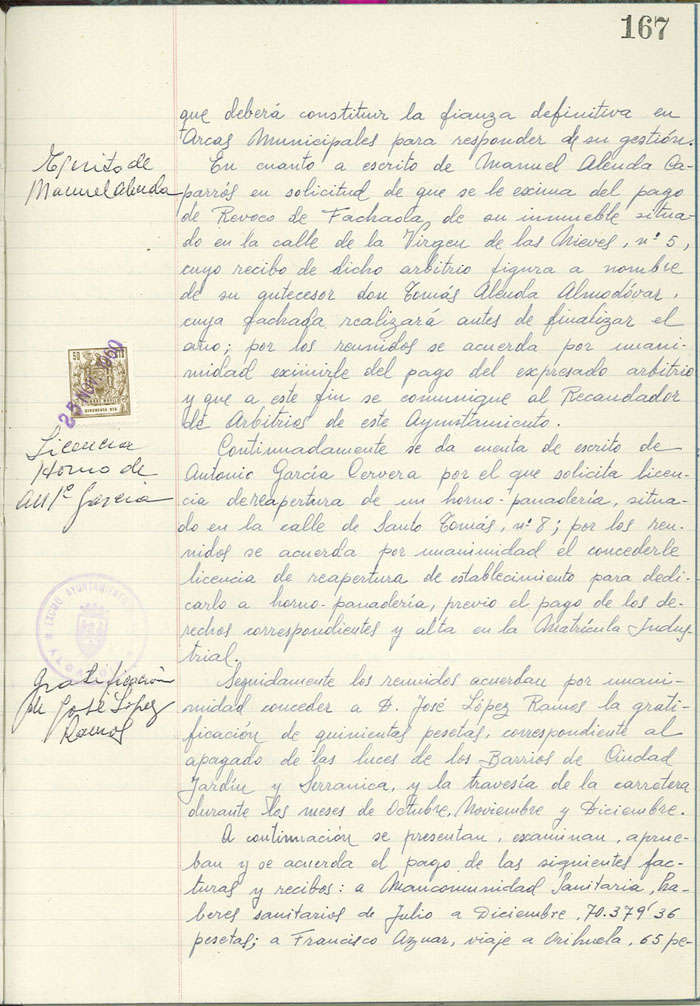 167
que deberá constituir la fianza definitiva en
Arcas Municipales para responder de su gestión.
Escrito de
Manuel Alenda
En cuanto a escrito de Manuel Alenda Ca-
parrós en solicitud de que se le exima del pago
de Revoco de Fachada, de su inmueble situa-
do en la calle de la Virgen de las Nieves, nº 5,
cuyo recibo de dicho arbitrio figura a nombre
de su antecesor don Tomás Alenda Almodóvar,
cuya fachada realizará antes de finalizar el
año; por los reunidos se acuerda por unani-
midad eximirle del pago del expresado arbitrio
y que a este fin se comunique al Recaudador
de Arbitrios de este Ayuntamiento.
50
25 NOV. 1960
Licencia
Horno de
Antº García
Continuadamente se da cuenta de escrito de
Antonio García Cervera por el que solicita licen-
cia de reapertura de un horno-panadería, situa-
do en la calle de Santo Tomás, nº 8; por los reu-
nidos se acuerda por unanimidad el concederle
licencia de reapertura de establecimiento para dedi-
carlo a horno-panadería, previo el pago de los de-
rechos correspondientes y alta en la Matrícula Indus-
trial.
EXCMO. AYUNTAMIENTO
Gratificación
de José López
Ramos
Seguidamente los reunidos acuerdan por unani-
midad conceder a D. José López Ramos la grati-
ficación de quinientas pesetas, correspondiente al
apagado de las luces de los Barrios de Ciudad
Jardín y Serranica, y la travesía de la carretera
durante los meses de Octubre, Noviembre y Diciembre.
A continuación se presentan, examinan, aprue-
ban y se acuerda el pago de las siguientes fac-
turas y recibos: a Mancomunidad Sanitaria, Ha-
beres sanitarios de Julio a Diciembre, 70.379'36
pesetas; a Francisco Aznar, viaje a Orihuela, 65 pe-